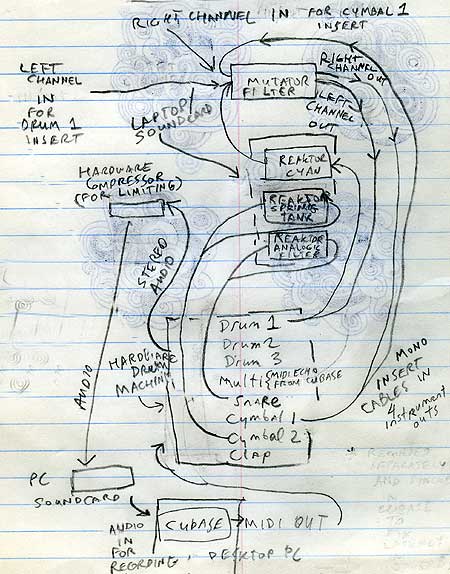 RIGHT CHANNEL IN FOR CYMBAL 1
INSERT
LEFT
CHANNEL
IN
FOR
DRUM 1
INSERT
MUTATOR
FILTER
RIGHT
CHANNEL
OUT
LEFT
CHANNEL
OUT
LAPTOP
SOUNDCARD
HARDWARE
COMPRESSOR
(FOR LIMITING)
REAKTOR
CYAN
REAKTOR
SPRING
TANK
REAKTOR
ANALOGIC
FILTER
STEREO
AUDIO
HARDWARE
DRUM
MACHINE
Drum 1
Drum 2
Drum 3
Multi (MIDI ECHO
FROM CUBASE)
Snare
Cymbal 1
Cymbal 2
Clap
MONO
INSERT
CABLES IN
4 instrument
outs
AUDIO
PC
SOUNDCARD
AUDIO
IN
FOR
RECORDING
CUBASE
MIDI OUT
DESKTOP PC
SEPARATELY
AND
CUBASE
TO